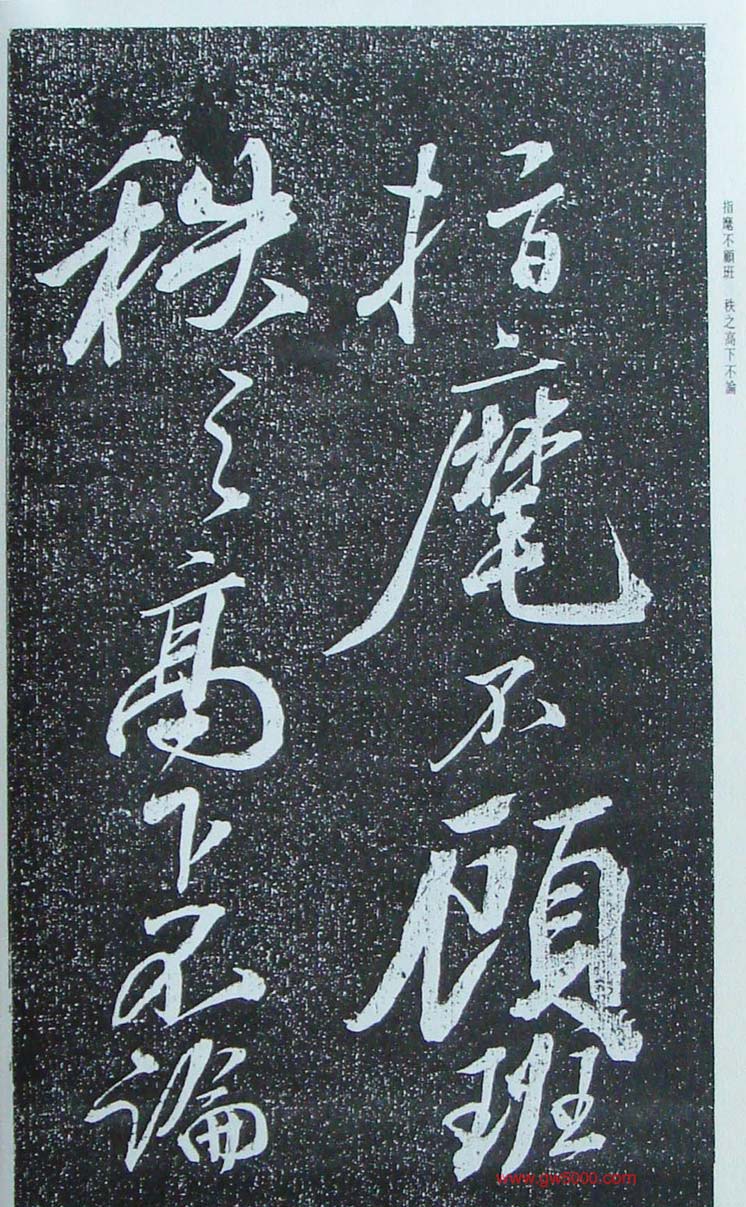 指麾不顧班
秩之高下不論
指麾不顧班 秩之高下不論
www.gw5000.com